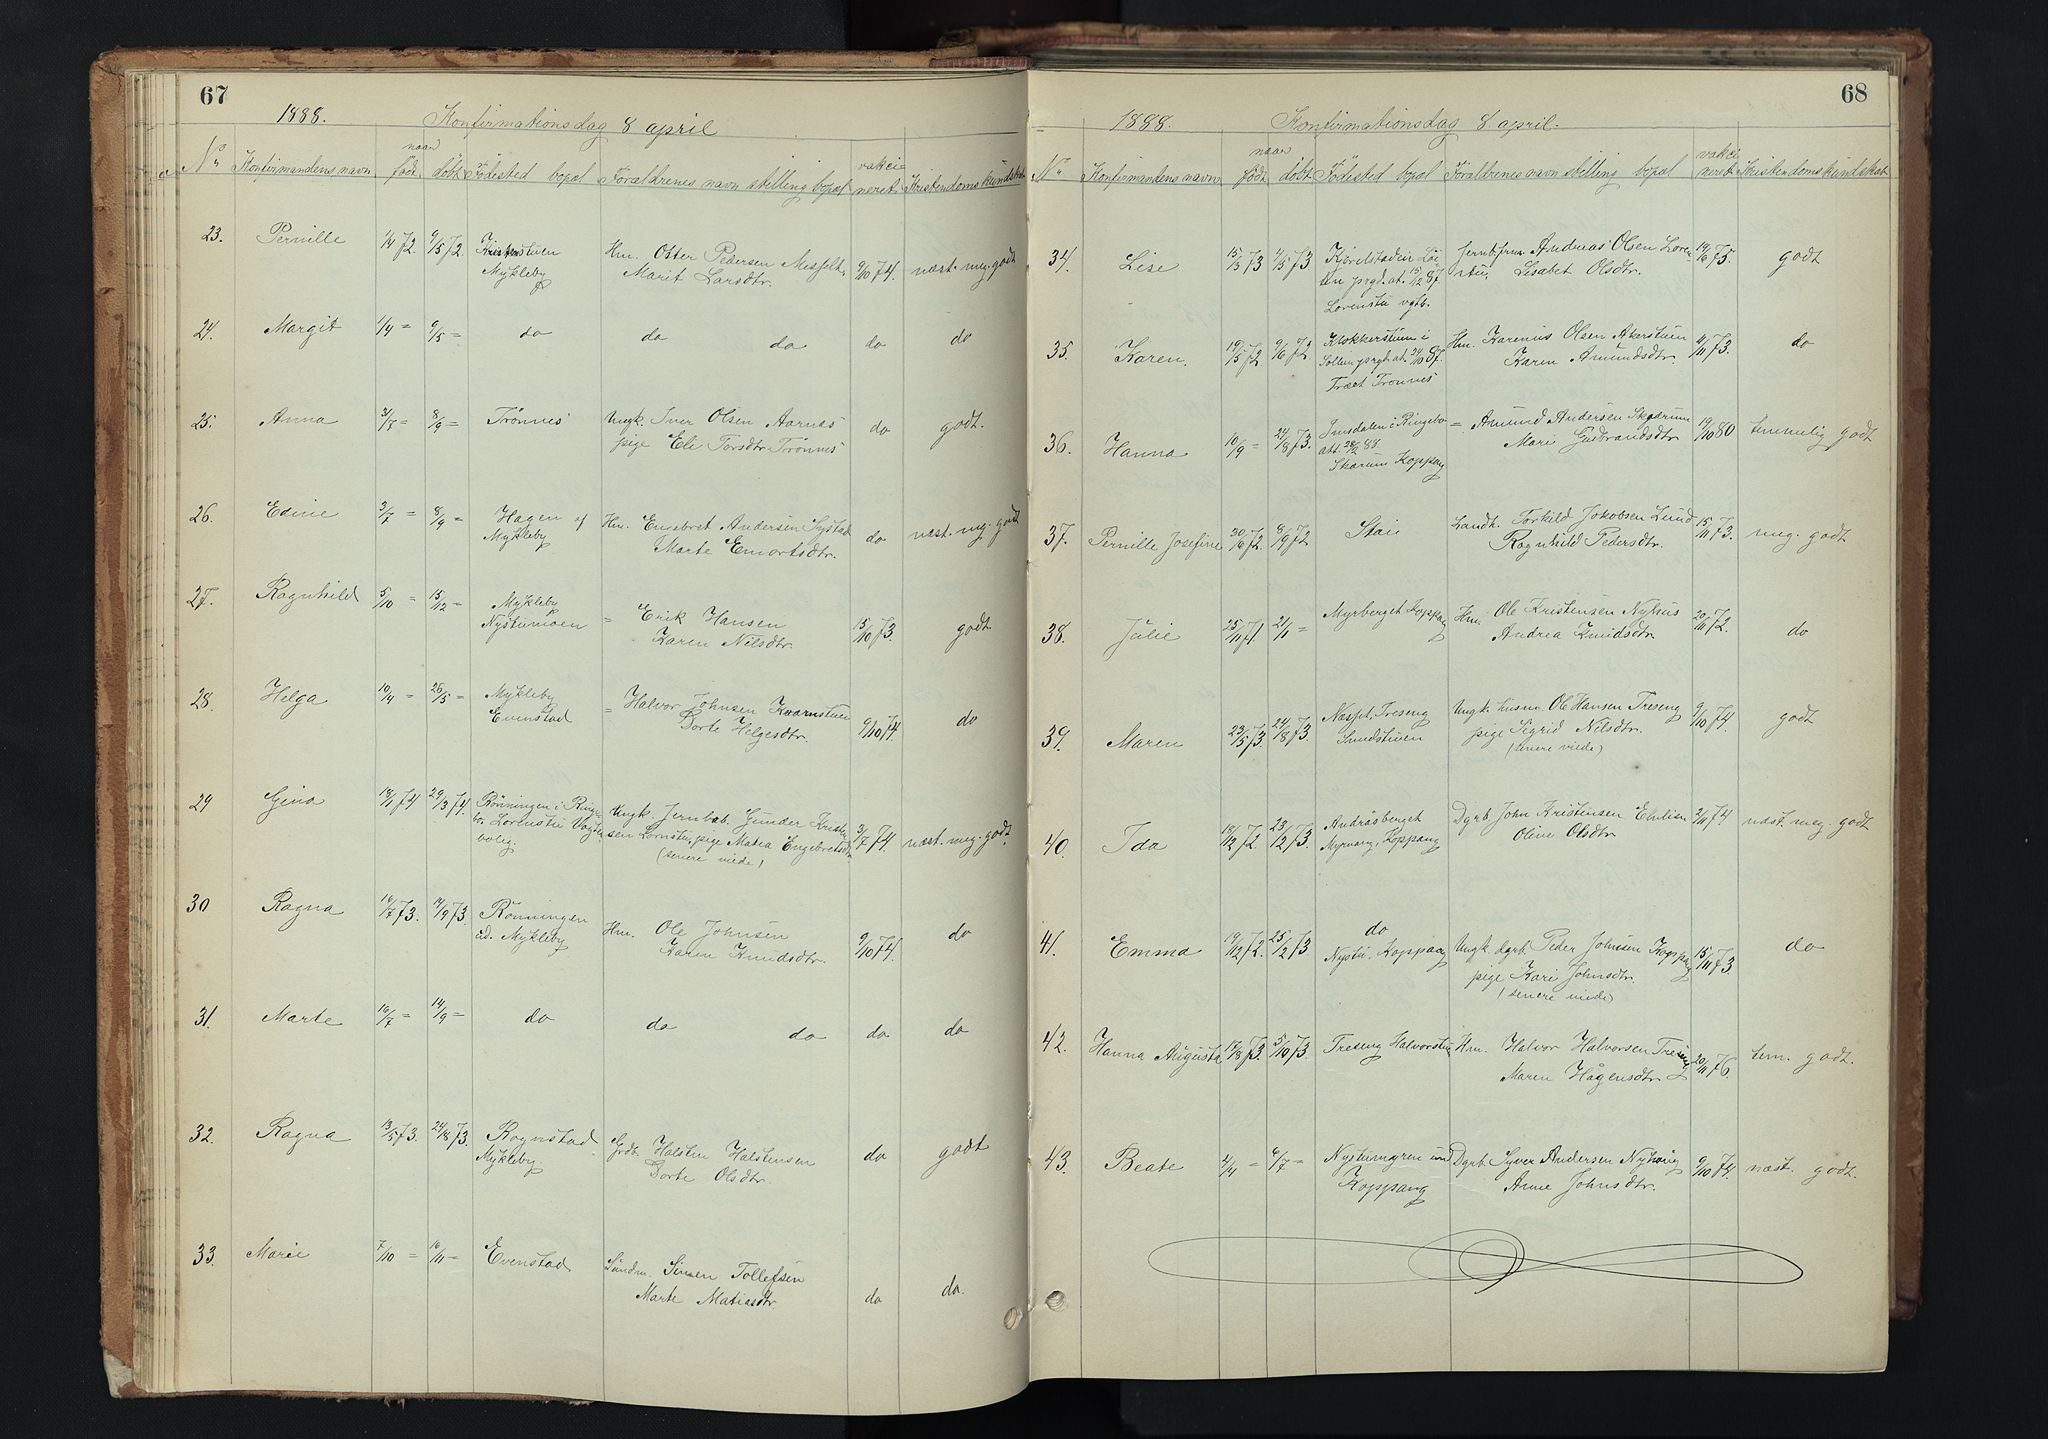 67
1888. Konfirmationsdag 8 april
No. Konfirmandens navn naar født døbt Fødested bopæl Forældrenes navn stilling bopæl vakcineret Kristendomskundskab
23. Pernille 1/4 72 9/5 72 Kristenstuen Hm. Oster Pedersen Messelt 9/10 74. næst. meg. godt
Mykleby Marit Larsdtr.
24. Margit 1/4 = 9/5 = do do do do do
25. Anna 8/9 = Trønnes Ungk. Iver Olsen Aarnæs do godt.
pige Eli Torsdtr. Trønnes
26. Edine 3/7 = 8/9 = Hagen af Hm. Engebret Andersen do næst. meg. godt
Mykleby Marte Emortsdtr.
27. Ragnhild 5/10 = 15/12 = Mykleby = Erik Hansen 15/10 73. godt
Nystumoen Karen Nilsdtr.
28. Helga 10/4 = 26/5 = Mykleby = Halvor Johnsen Kvarnstuen 9/10 74. do
Evenstad Dorte Helgesdtr.
29 Gina 18/1 74 29/3 74. Rønningen i Ringe- Ungk. Jernbab. Gunder Kristen- 3/7 74 næst. meg. godt.
bo. Lorenstu Vogter- sen Lornstu, pige Matea Engebretsdtr
bolig. (senere viede)
30 Ragna 16/7 73. 14/9 73. Rønningen Hm. Ole Johnsen 9/10 74. do
ud. Mykleby Karen Knudsdtr.
31. Marte 16/7 = 14/9 = do do do do do
32. Ragna 13/5 73. 24/8 73. Rognstad Grdb. Halsten Halstensen do godt
Mykleby. Dorte Olsdtr.
33. Marie 7/10 = 16/11 = Evenstad Simen Tollefsen do do.
Marte Matiasdtr.
68
1888. Konfirmationsdag 8. april.
No. Konfirmandens navn naar født døbt Fødested bopæl Forældrenes navn stilling bopæl vakcineret Kristendomskundskab
34. Lise 15/3 73 4/5 73 i Løi- Jernb.frm. Andreas Olsen Loren- 19/6 75. godt
ten prgd. at. 15/12 87. stu. Lisabet Olsdtr.
Lorenstu vgtb.
35. Karen. 19/5 72 9/6 72 Klokkerstuen i Hm. Karenus Olsen Akerstuen 11/11 73. do
Sollien prgd. at. 24/10 87. Karen Amundsdtr.
Træet Trønnes
36. Hanna 10/9 = 24/8 73. Imsdalen i Ringebo = Amund Andersen Skarum 19/10 80 temmelig godt
att. 28/2 88. Mari Gudbrandsdtr.
Skarum Koppang
37. Pernille Josefine 30/6 72. 8/9 72 Stai Landh. Torkild Jokobsen Lund 15/11 73. meg. godt
Ragnhild Pedersdtr.
38. Julie 25/11 71 21/1 = Myrberget Koppang Hm. Ole Kristensen Nyhus 20/11 72. do
Andrea Knudsdtr.
39. Maren 23/5 73. 24/8 73. Næsset, Treseng Ungk. husm. Ole Hansen Treseng 9/10 74. godt
Sundstuen pige Sigrid Nilsdtr.
(senere viede)
40. Ida 18/12 72. 23/2 73. Andråsberget Dgrb. John Kristensen 2/11 74 næst. meg. godt
Myrvang, Koppang Oline Olsdtr.
41. Emma 19/12 72. 25/2 73. do Ungk. dgrb. Peder Johnsen Koppang 15/11 73. do
Nystu. Koppang pige Kari Johnsdtr.
(senere viede)
42. Hanna Augusta 17/8 73. 5/10 73. Treseng Halvorstu Hm. Halvor Halvorsen Treseng 20/11 76. tem. godt.
Maren Hågensdtr
43. Beate 4/4 = 6/7 = und Dgrb. Syver Andersen 9/10 74. næst. godt.
Koppang Anne Johnsdtr.